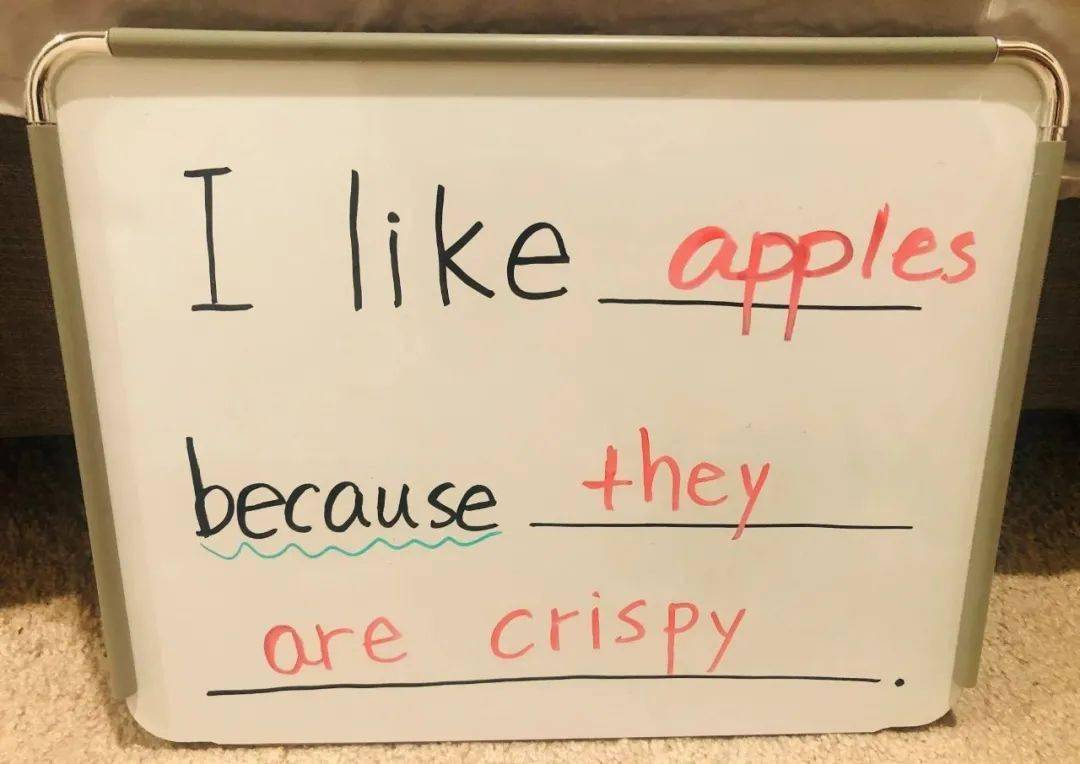 I like apples
because they
are crispy.